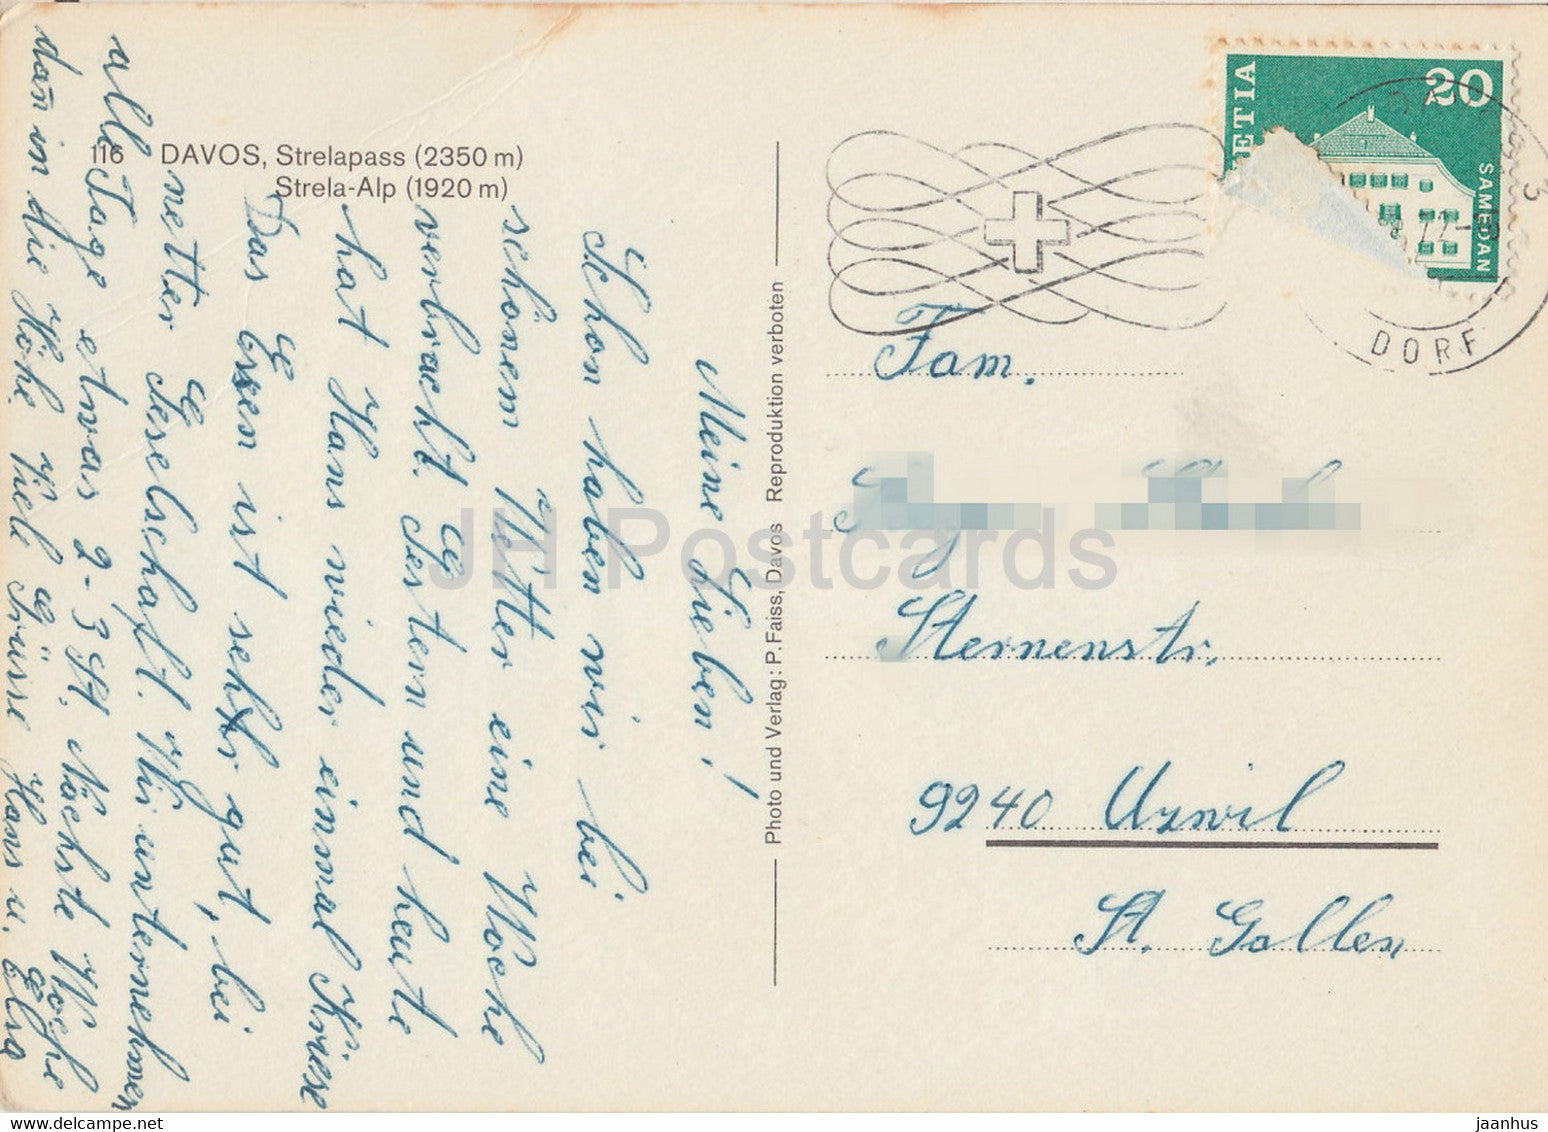 116 DAVOS, Strelapass (2350 m)
Strela-Alp (1920 m)
Meine Lieben!
Schon haben wir bei
schönem Wetter eine Woche
verbracht. Gestern und heute
hat Hans wieder einmal Kriese
Das Essen ist sehr gut, bei
netter Geselschaft. Wir unternehmen
alle Tage etwas 2-3 St. Nächste Woche
dan̄ in die Höhe Viele Grüsse Hans u. Elsa
Photo und Verlag: P. Faiss, Davos Reproduktion verboten
HELVETIA
20
SAMEDAN
DORF
Fam.
Sternenstr.
9240 Uzwil
St. Gallen
JH Postcards
jaanhus